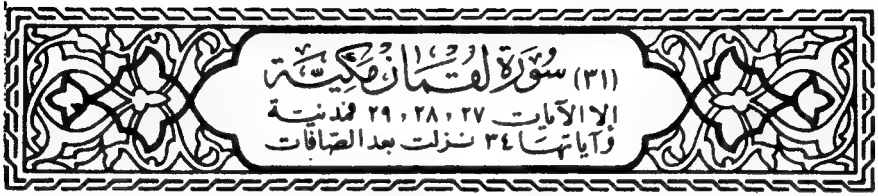 (٣١) سُورَة لقمَان مَكِيَّة
إلا الآيات ٢٧ ، ٢٨ ، ٢٩ فمدنيَّة
وَآياتهَا ٣٤ نزلت بعد الصَّافات